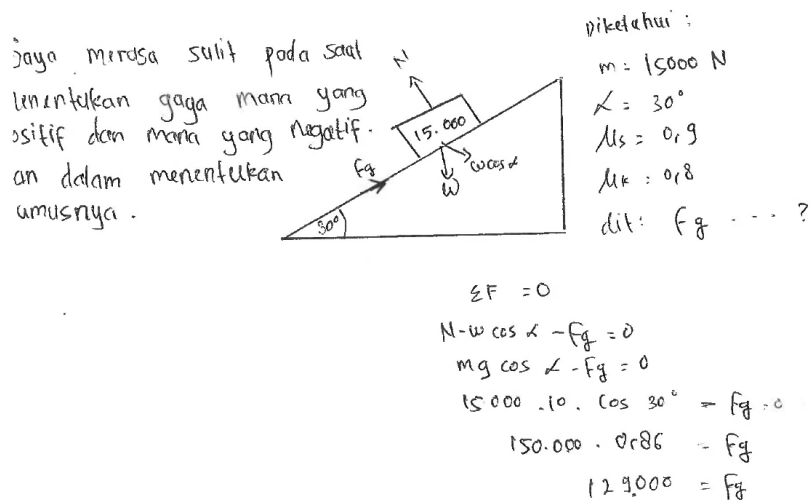 Saya merasa sulit pada saat
menentukan gaya mana yang
ositif dan mana yang negatif.
an dalam menentukan
umusnya.
N
15.000
fg
w cos α
w
30°
Diketahui :
m = 15000 N
α = 30°
μs = 0,9
μk = 0,8
dit: fg ... ?
ΣF = 0
N-w cos α - fg = 0
mg cos α - fg = 0
15000 .10. cos 30° - fg = 0
150.000 . 0,86 = fg
129.000 = fg